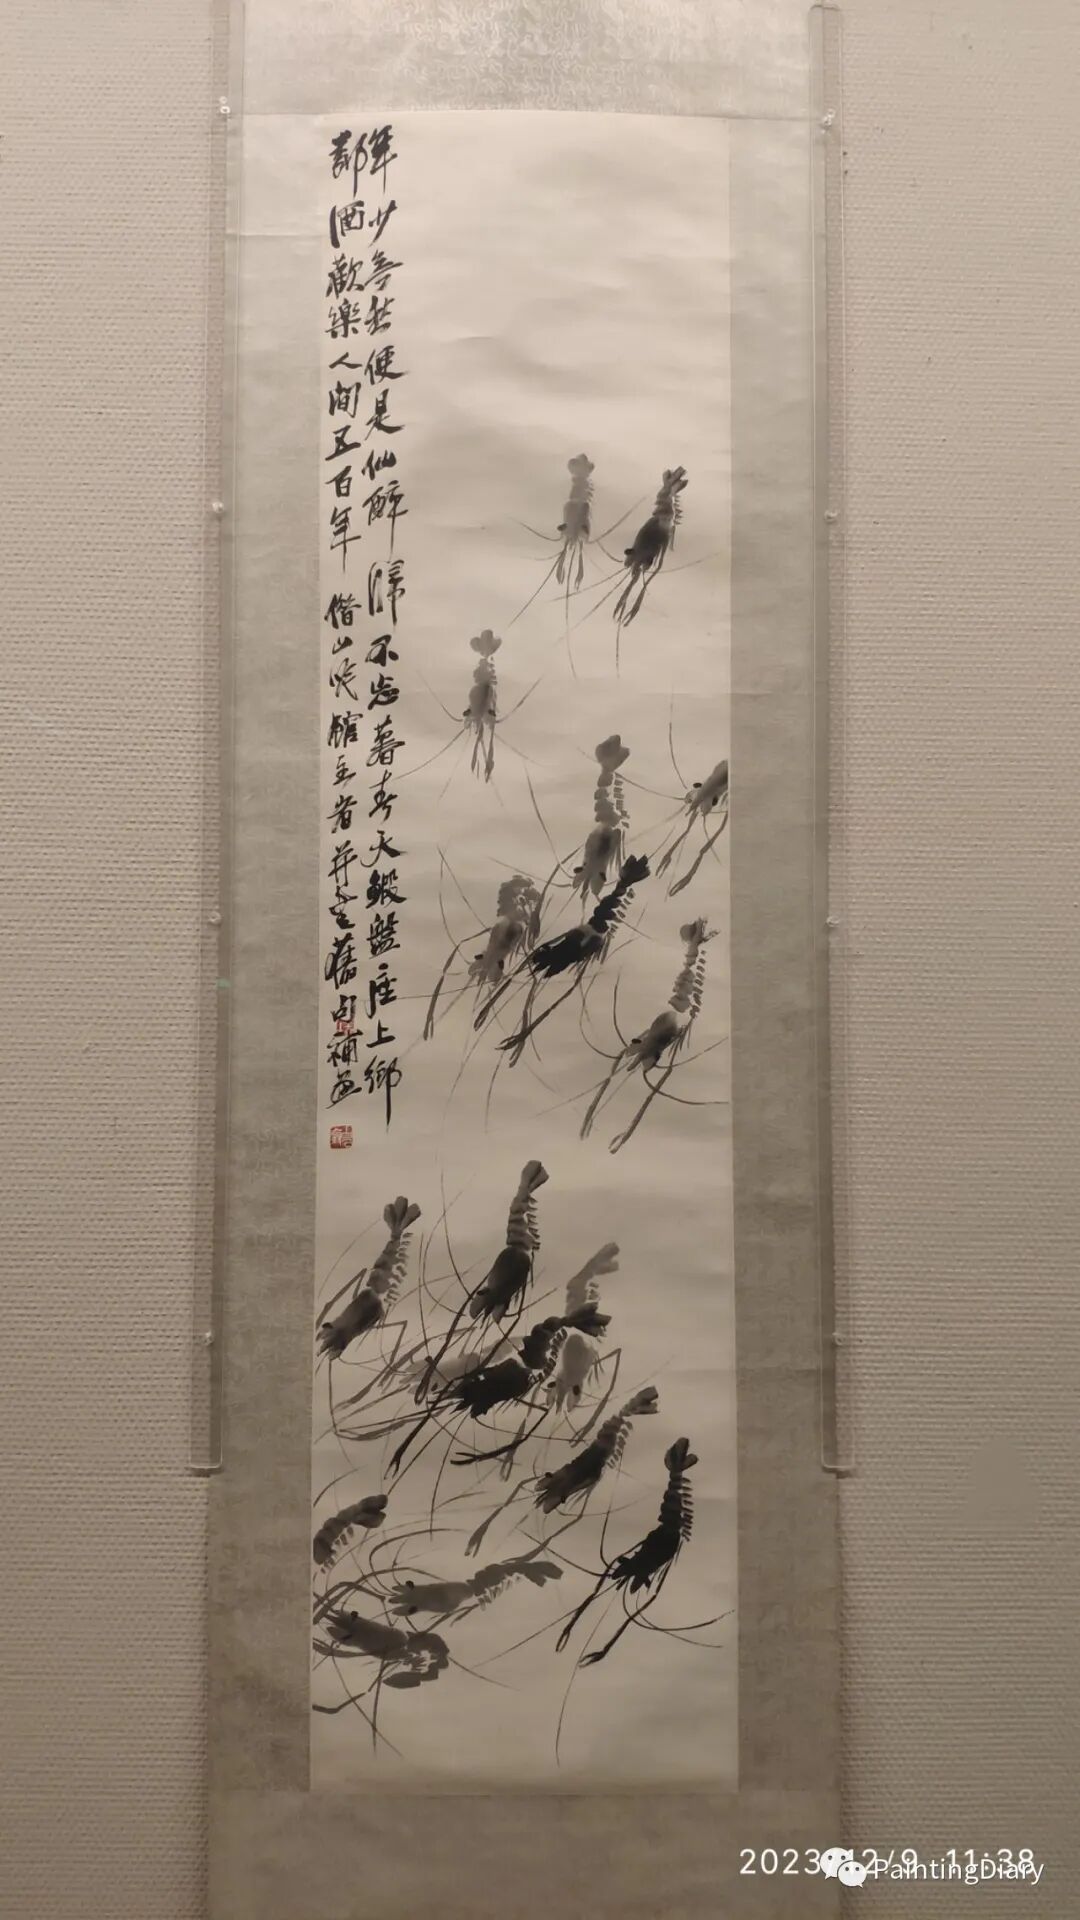 年少無愁便是仙醉歸不忘暮春天鰕盤座上鄉
鄰酒歡樂人間五百年 借山吟館主者并書舊句補畫
2023/12/9 11:38
PaintingDiary